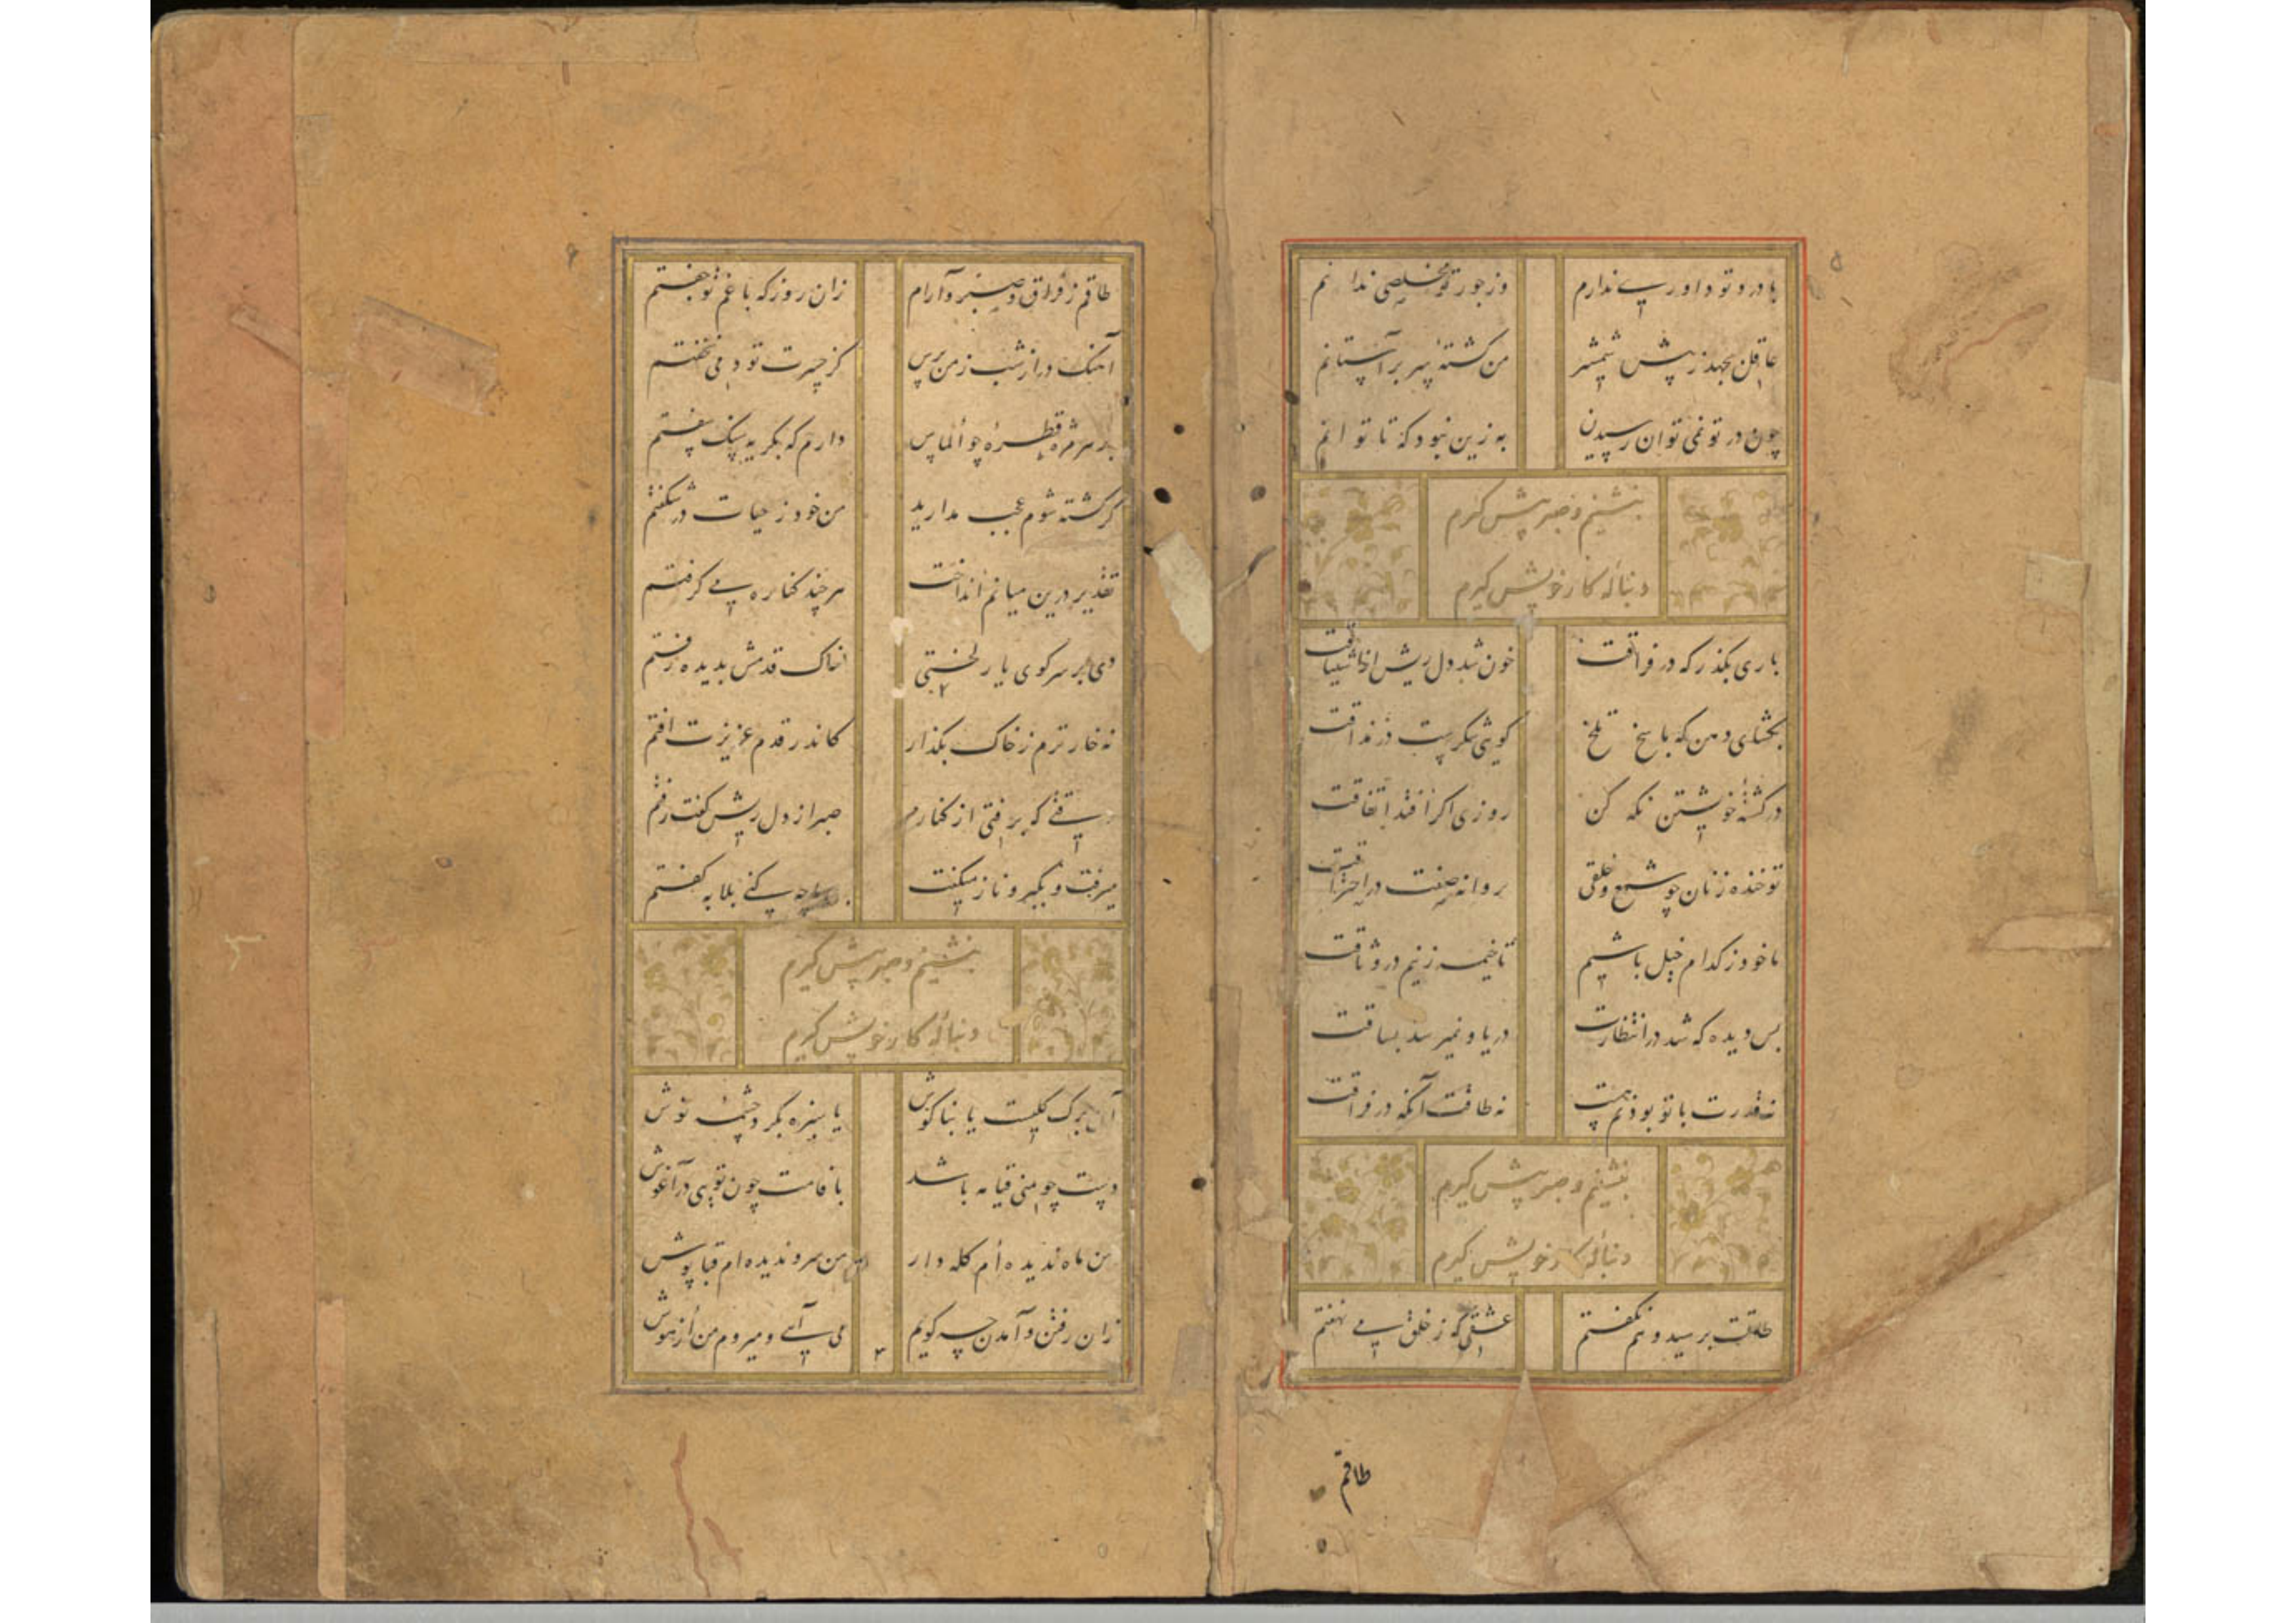 با درد تو داوری ندارم وز جور تو مخلصی ندانم
عاقل بجهد ز پیش شمشیر من کشته سر بر آستانم
چون در تو نمی توان رسیدن به زین نبود که تا توانم
بنشینم و صبر پیش گیرم
دنباله کار خویش گیرم
باری بگذر که در فراقت خون شد دل ریش از اشتیاقت
بگشای دهن که پاسخ تلخ گویی شکرست در مذاقت
در کشته خویشتن نگه کن روزی اگر افتد اتفاقت
تو خنده زنان چو شمع و خلقی پروانه صفت در احتراقت
ما خود ز کدام خیل باشیم تا خیمه زنیم در وثاقت
بس دیده که شد در انتظارت دریا و نمیرسد بساقت
نه قدرت با تو بودنم هست نه طاقت آنکه در فراقت
بنشینم و صبر پیش گیرم
دنباله کار خویش گیرم
طاقت برسید و هم نگفتم عشقی که ز خلق می نهفتم
طاقم
طاقم ز فراق و صبر و آرام زان روز که با غم تو جفتم
آهنگ دراز شب ز من پرس کز حسرت تو دمی نخفتم
بر هر مژه قطره چو الماس دارم که بگریه سنگ سفتم
گر کشته شوم عجب مدارید من خود ز حیات در شگفتم
تقدیر درین میانم انداخت هر چند کناره می گرفتم
دی بر سر کوی یار لختی خاک قدمش بدیده رفتم
نه خار ترم ز خاک بگذار کاندر قدم عزیزت افتم
گر برفتی از کنارم صبر از دل ریش گفت رفتم
میرفت و بکبر و ناز میگفت کنی بلابه گفتم
بنشینم و صبر پیش گیرم
دنباله کار خویش گیرم
آن برگ گلست یا بناگوش یا سبزه بگرد چشمه نوش
دست چو منی قیامه باشد با قامت چون تویی در آغوش
من ماه ندیده ام کله دار من سرو ندیده ام قباپوش
زان رفتن و آمدن چه گویم می آیی و میروم من از هوش